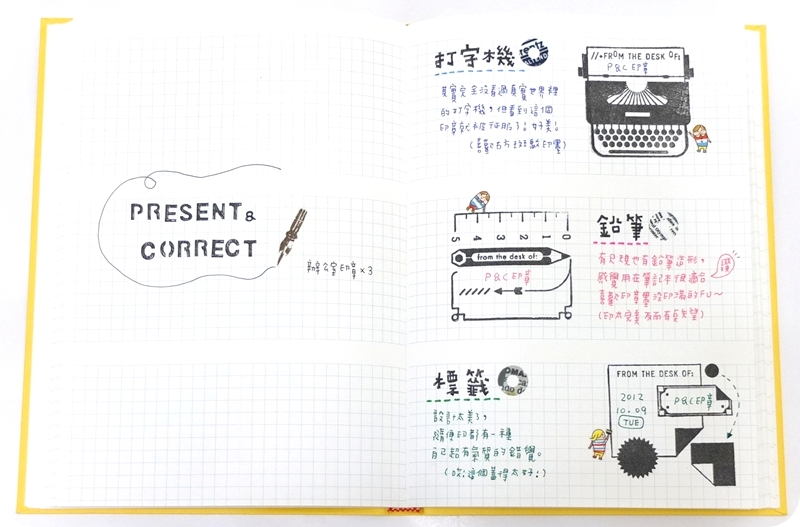 PRESENT&
CORRECT
辦公室印章x3
打字機
其實完全沒看過真實世界裡
的打字機,但看到這個
印章就被征服了!好美。
(喜歡右方斑駁印墨)
//*FROM THE DESK OF:
P&C印章
0 1 2 3 4 5
from the desk of:
P&C印章
鉛筆
有尺規也有鉛筆造形,
感覺用在筆記本很適合
喜歡印章墨沒印滿的FU~
(印太完美反而有點失望)
標籤
設計太美了,
隨便印都有一種
自己超有氣質的錯覺。
(欸!這個蓋得太好!)
FROM THE DESK OF:
2012
10.09
TUE
P&C印章